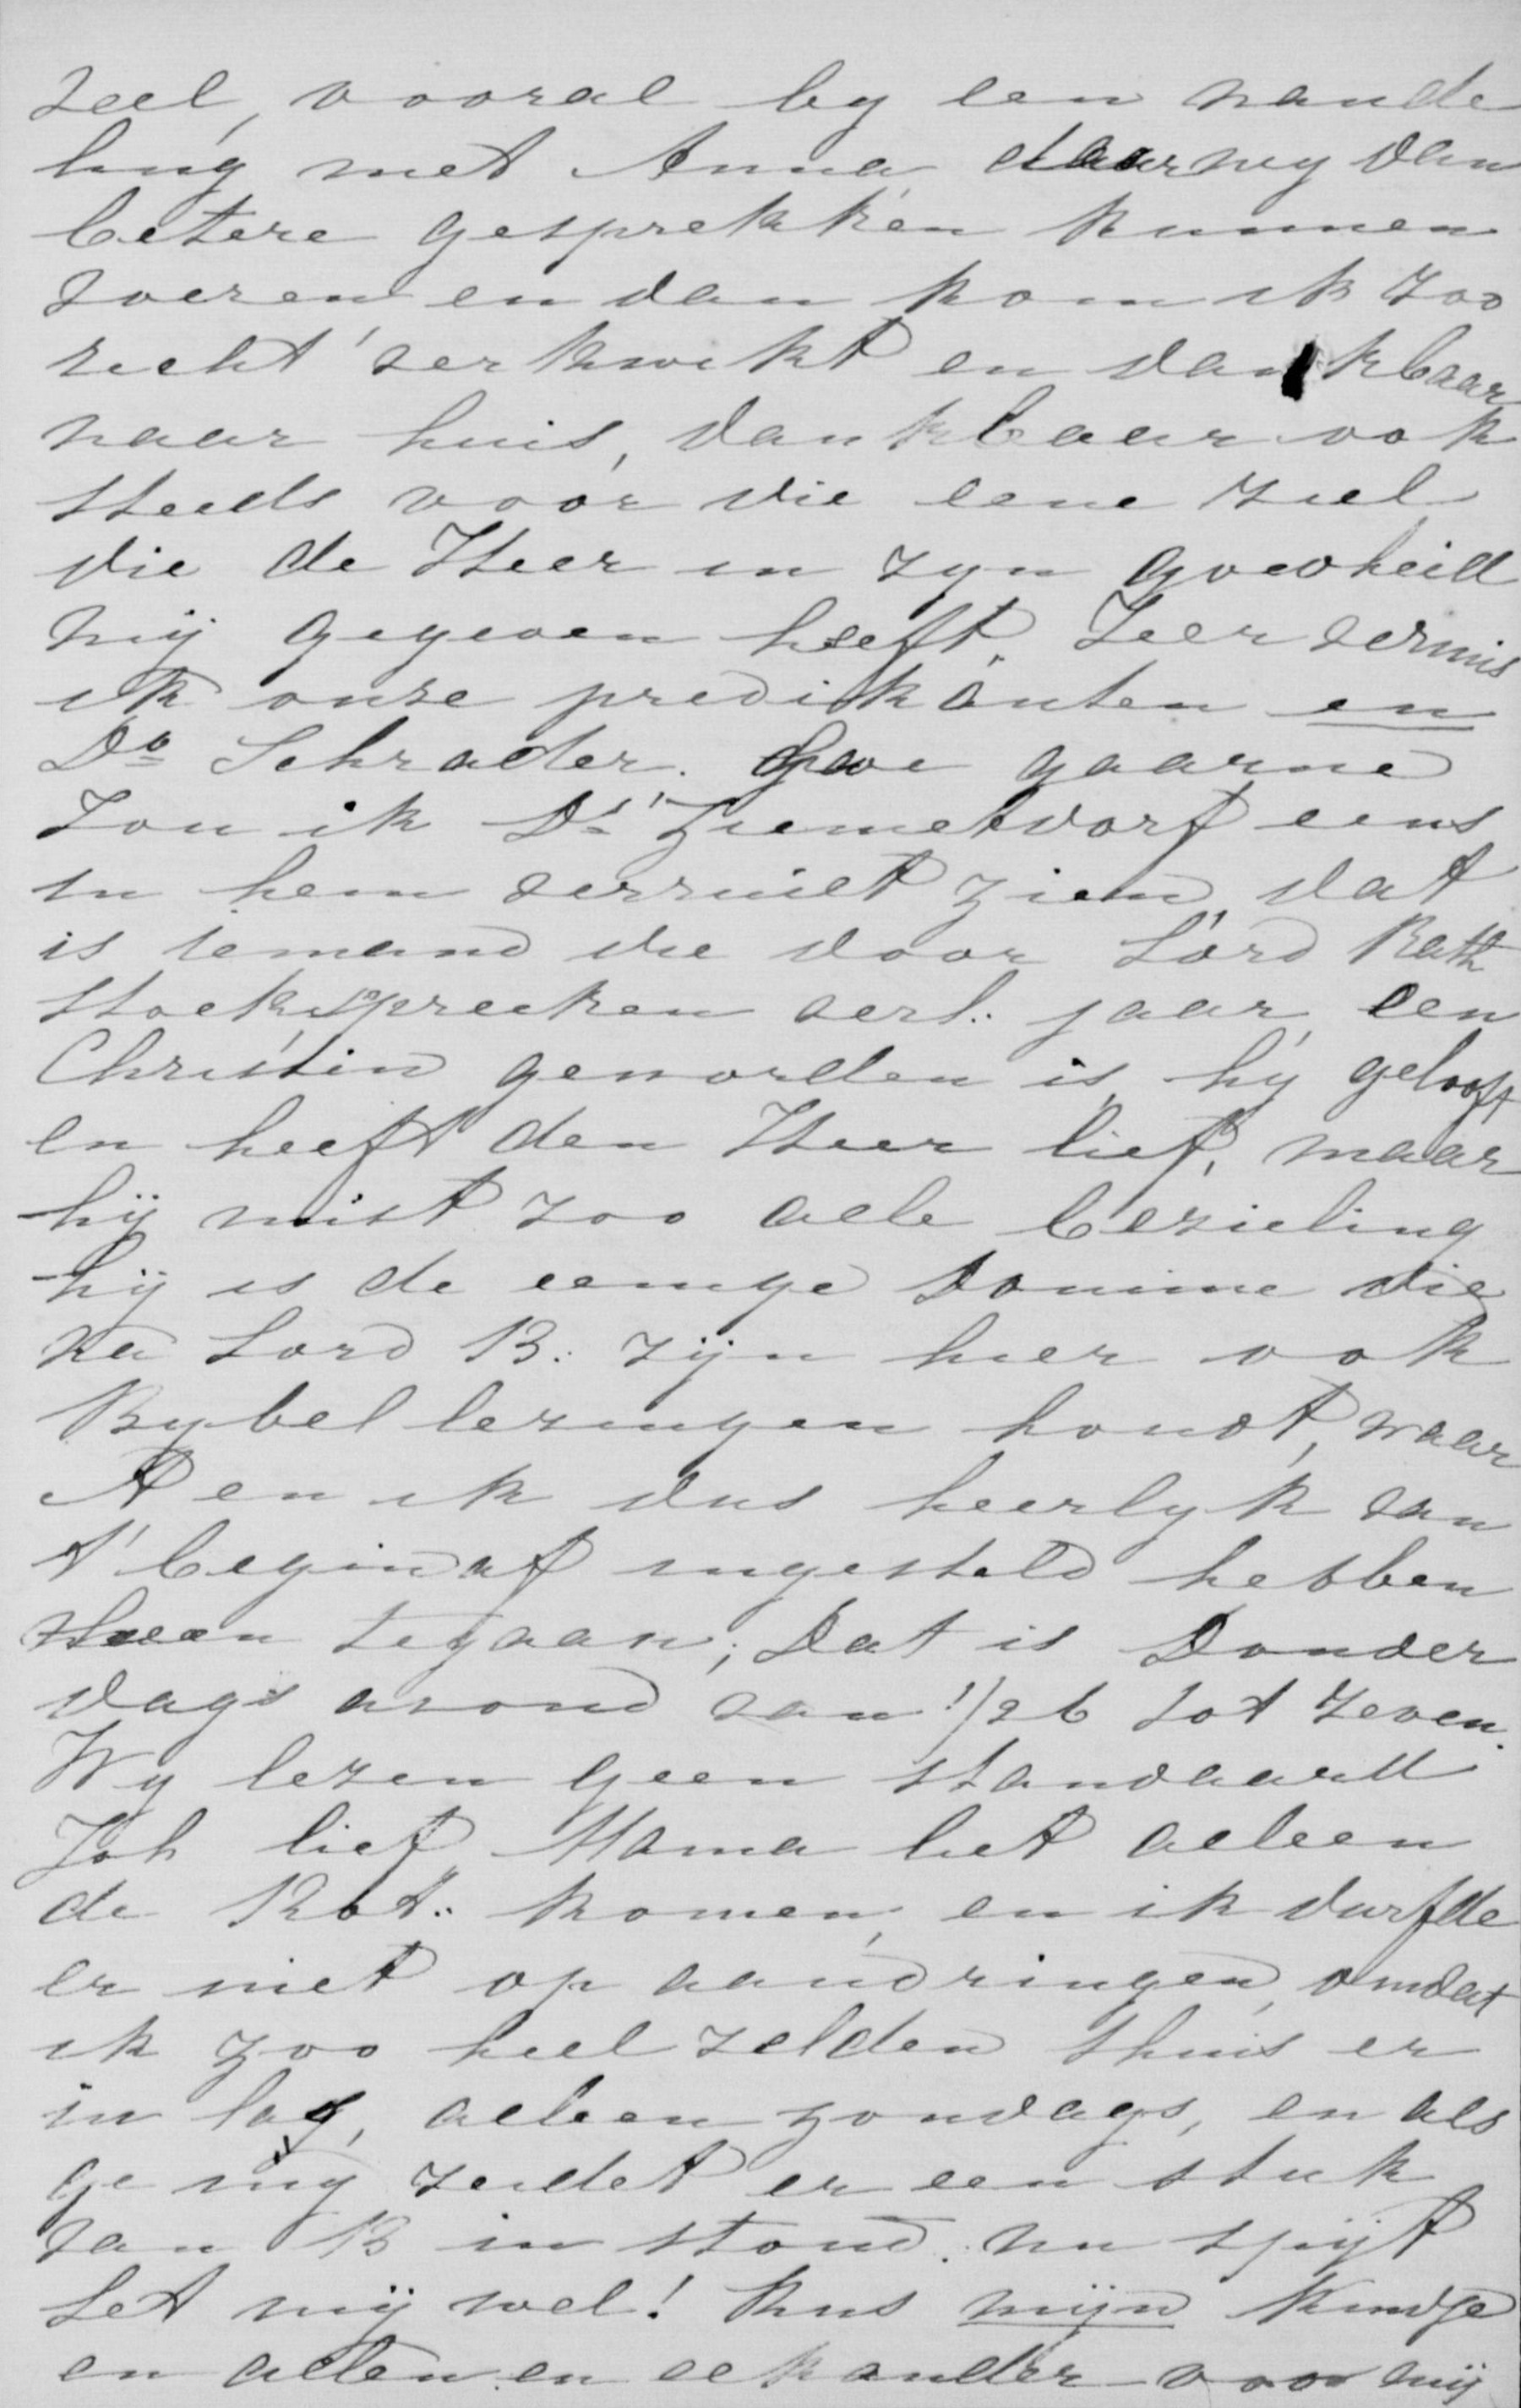 veel, vooral by een wande
ling met Anna, daar wy dan
betere gesprekken kunnen
voeren en dan kom ik zoo
recht verkwikt en dankbaar
naar huis, dankbaar ook
steeds voor die eene ziel
die de Heer in zyn goedheid
mij gegeven heeft. Zeer vermis
ik onze predikanten en
Do Schrader. Hoe gaarne
zou ik Ds Ziemetdorf eens
in hem verruilt zien, dat
is iemand die door Lord Rath
stocks spreeken verl: jaar, een
Christin geworden is, hy gelooft
en heeft den Heer lief, maar
hij mist zoo alle bezieling
hij is de eenige Domine die
na Lord R: zijn hier ook
Bybellezingen houdt, waar
A en ik dus heerlyk van
t' begin af ingesteld hebben
heen te gaan; Dat is Donder
dags avond van 1/2 6 tot zeven.
Wy lezen geen standaard
Joh lief, Mama liet alleen
de Rott: komen, en ik durfde
er niet op aandringen, omdat
ik zoo heel zelden thuis er
in las, alleen zondags, en als
ge mij zeidet er een stuk
van B in stond. nu spijt
het mij wel! Kus mijn kindje
en allen en elkander voor mij